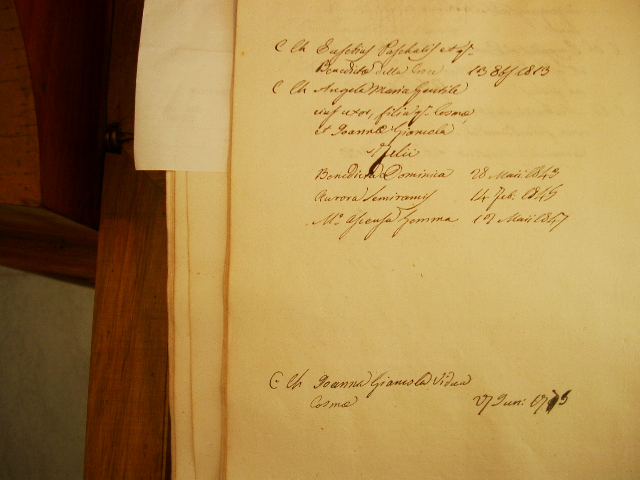 C Ch Eusebius Paschalis et q.
Benedictæ della Croce 13 8bf. 1813
C Ch Angela Maria Gentile
eius uxor, filia q. Cosmæ
et Joannæ Gianiola
Filii
Benedicta Dominica 28 Maii 1843
Aurora Semiramis 14 Feb. 1845
Mª Ascensa Gemma 17 Maii 1847
C Ch Joanna Gianiola Vidua
Cosmæ 27 Juni